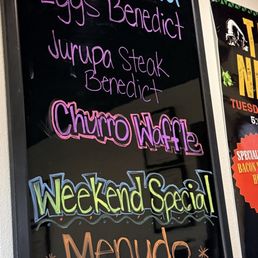 Eggs Benedict
Jurupa Steak
Benedict
Churro Waffle
Weekend Special
Menudo
TUESD
SPECIAL
BACON